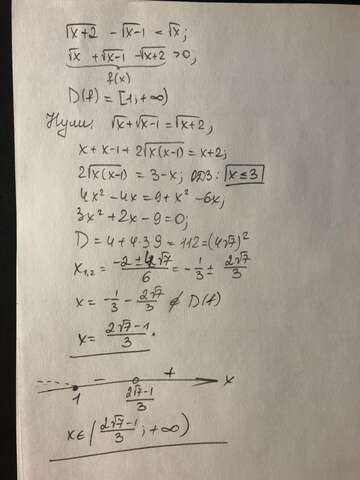 √x+2 - √x-1 = √x;
√x + √x-1 - √x+2 >0;
f(x)
D(f) = [1,+∞)
Нули: √x + √x-1 = √x+2;
x + x-1 + 2√x(x-1) = x+2;
2√x(x-1) = 3-x; ОДЗ: x≤3
4x² -4x = 9 + x² -6x;
3x² + 2x - 9 = 0;
D = 4 + 4·3·9 = 112 = (4√7)²
x₁,₂ = (-2 ± 4√7)/6 = -1/3 ± 2√7/3
x = -1/3 - 2√7/3 ∉ D(f)
x = (2√7-1)/3.
- + x
1 (2√7-1)/3
x∈((2√7-1)/3; +∞)